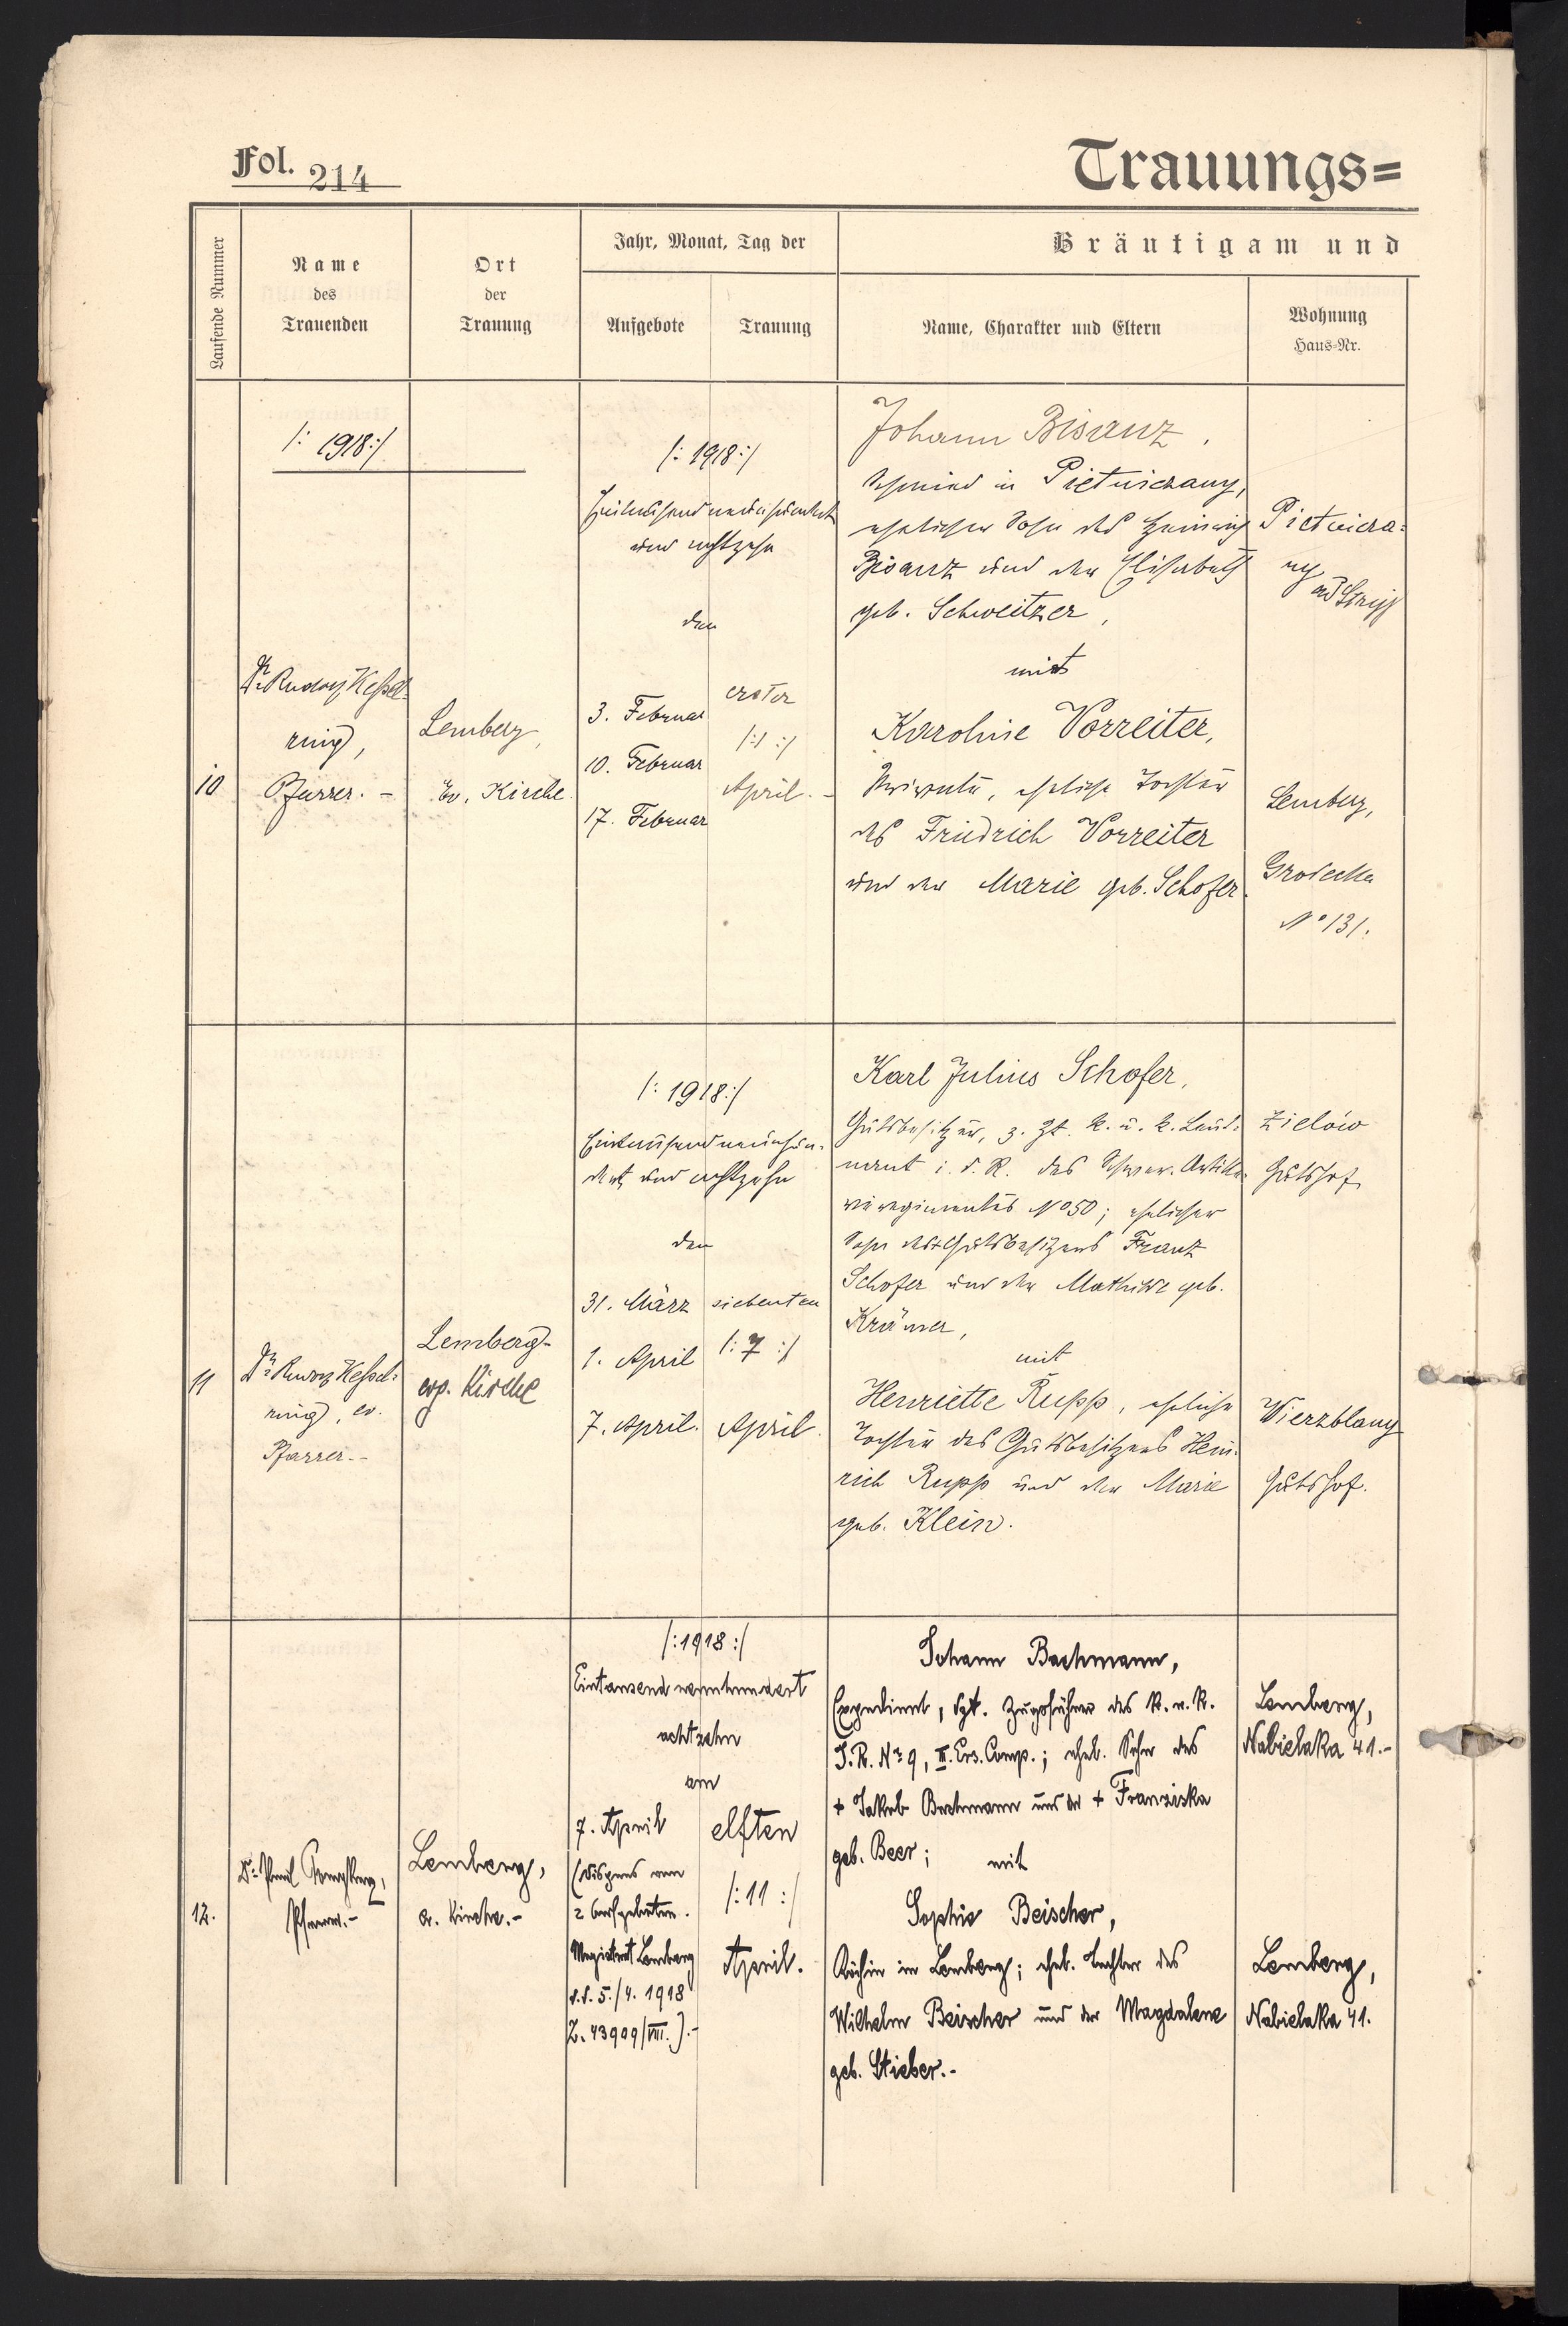 Fol. 214
Trauungs=
Laufende Nummer
Name
des
Trauenden
Ort
der
Trauung
Jahr, Monat, Tag der
Aufgebote
Trauung
Bräutigam und
Name, Charakter und Eltern
Wohnung
Haus=Nr.
/: 1918 :/
10
Dr. Rudolf Keßel=
ring,
Pfarrer. -
Lemberg,
Ev. Kirche.
/: 1918 :/
Eintausendneunhundert
und achtzehn
den
3. Februar
10. Februar
17. Februar
erster
/:1 :/
April. -
Johann Bisanz,
Schmied in Pietniczany,
ehelicher Sohn des Heinrich
Bisanz und der Elisabeth
geb. Schweitzer,
mit
Karoline Vorreiter,
Private, eheliche Tochter
des Friedrich Vorreiter
und der Marie geb. Schofer.
Pietnicza=
ny
Lemberg,
Grodecka
No 131.
11
Dr. Rudolf Keßel=
ring, ev.
Pfarrer. -
Lemberg -
evg. Kirche
/: 1918 :/
Eintausendneunhun=
dert und achtzehn
den
31. März
1. April
7. April.
siebenten
/: 7 :/
April.
Karl Julius Schofer,
Gutsbesitzer, z. Zt. k. u. k. Leut=
nant i. d. R. des Schwer. Artille=
rieregimentes No 50; ehelicher
Sohn des Gutsbesitzers Franz
Schofer und der Mathilde geb.
Krämer,
mit
Henriette Rupp, eheliche
Tochter des Gutsbesitzers Hein=
rich Rupp und der Marie
geb. Klein.
Zielów
Gutshof
Wierzblany
Gutshof.
12.
Pfarrer. -
Lemberg,
ev. Kirche. -
/: 1918 :/
Eintausend neunhundert
achtzehn
am
7. April
(Dispens vom
2 Aufgeboten.
Magistrat Lemberg
d. d. 5./4. 1918
Z. 43909/VIII.). -
elften
/: 11 :/
April.
Johann Bachmann,
Expedient, dzt. Zugsführer des k. u. k.
I. R. No 9, II. Ers. Comp.; ehel. Sohn des
+ Jakob Bachmann und der + Franziska
geb. Beer; mit
Sophie Beischer,
Köchin in Lemberg; ehel. Tochter des
Wilhelm Beischer und der Magdalene
geb. Stieber. -
Lemberg,
Nabielaka 41. -
Lemberg,
Nabielaka 41.